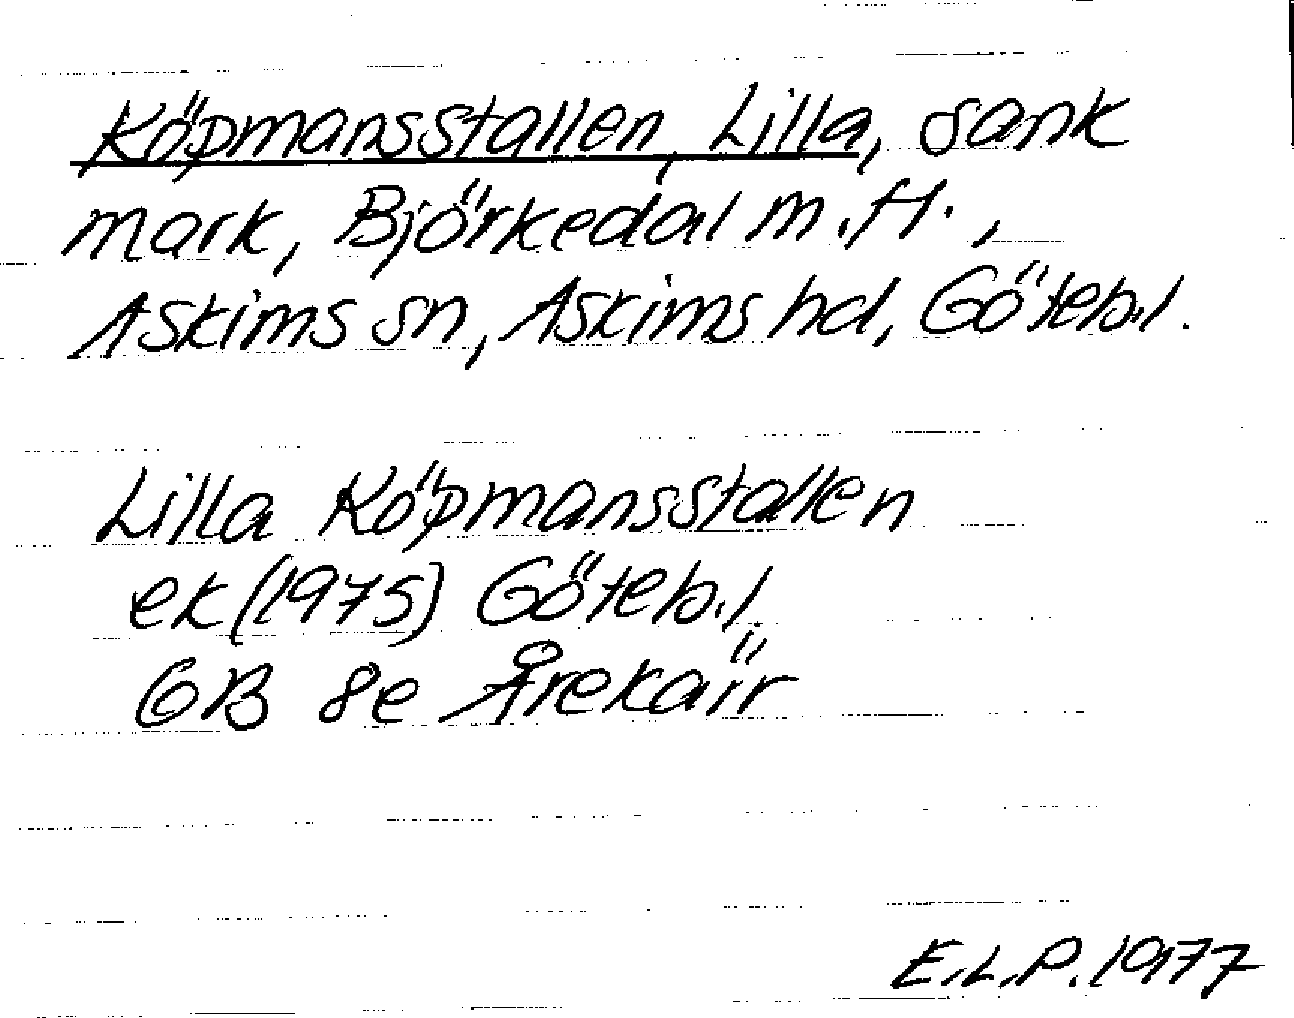 Köpmansstallen, Lilla, sank
mark, Björkedal m.fl.,
Askims sn, Askims hd, Göteb.l.
Lilla Köpmansstallen
ek (1975) Göteb.l.
GB 8e Årekärr
E.L.P. 1977